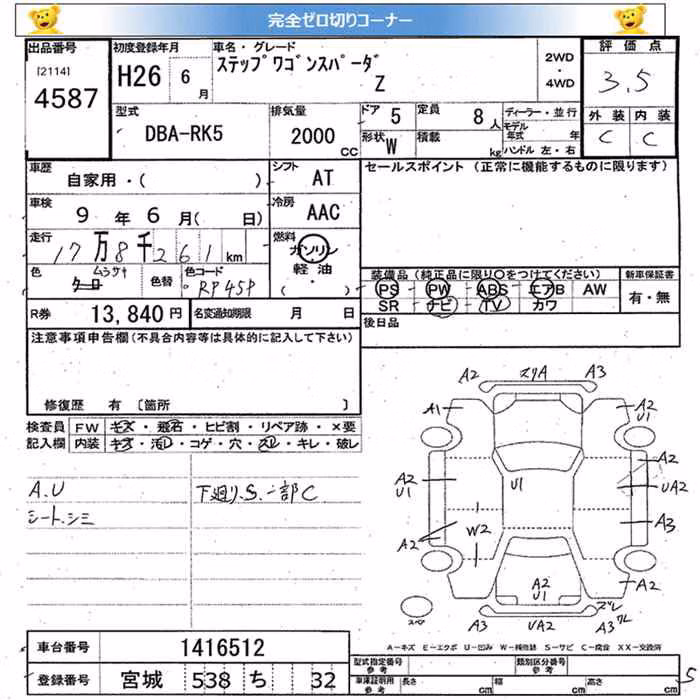 完全ゼロ切りコーナー
出品番号
[2114]
4587
初度登録年月
H26 6月
車名・グレード
ステップワゴンスパーダ
Z
2WD
・
4WD
評価点
3.5
外装 内装
C C
型式
DBA-RK5
排気量
2000
CC
ドア 5
定員 8人
形状 W
積載 kg
ディーラー・並行
モデル年式 年
ハンドル 左・右
車歴
自家用・( )
シフト AT
セールスポイント (正常に機能するものに限ります)
車検
9年6月( 日)
冷房 AAC
走行
17万8千261km
燃料
ガソリン
軽油
( ・ )
色
ムラサキ
色替
色コード
RP45P
装備品(純正品に限り○をつけてください)
PS PW ABS エアB AW
SR ナビ TV カワ
新車保証書
有・無
R券 13,840円
名変通知期限 月 日
後日品
注意事項申告欄(不具合内容等は具体的に記入して下さい)
修復歴 有 [箇所 ]
検査員記入欄
FW キズ・飛石・ヒビ割・リペア跡・×要
内装 キズ・汚レ・コゲ・穴・スレ・キレ・破レ
A.U
シート.シミ
下廻り.S.一部C
A2 スリA A3
A1
A2
U1
A2
U1
U1
A2
UA2
A2
W2
A3
A2
U1
A2
A3 UA2 A3
スペア
A-キズ E-エクボ U-凹み W-補修跡 S-サビ C-腐食 XX-交換済
車台番号 1416512
登録番号 宮城 538 ち 32
型式指定番号
参考
類別区分番号
参考
車庫証明用
参考
長さ cm
幅 cm
高さ cm
5